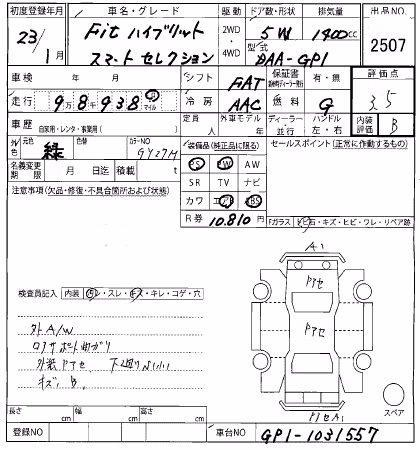 初度登録年月 車名・グレード 駆動 ドア数・形状 排気量 出品NO
23/1月 Fit ハイブリット スマートセレクション 2WD・4WD 5W 1400cc 2507
型式 DAA-GP1
車検 年 月 シフト FAT 保証書 有・無 評価点
走行 9万8千938 km マイル 冷房 AAC 燃料 G 3.5
車歴 自家用・レンタ・事業用( ) 定員 人 外車モデル 年 ディーラー・並行 ハンドル 左・右 内装評価 B
外色 元色 緑 色替 カラーNO GY27M 装備品(純正品に限る) セールスポイント(正常に作動するもの)
PS PW AW
名義変更期限 月 日迄 積載 t SR TV ナビ
注意事項(欠品・修復・不具合箇所および状態) カワ エアB ABS
R券 10.810円 Fガラス 石・キズ・ヒビ・ワレ・リペア跡
A1
Pアセ
検査員記入 内装 スレ・キズ・キレ・コゲ・穴
Pアセ
外A/W
ロアサポート曲ガリ
外紙Pアセ 下廻りサビ
キズ、B、
スペア
PアセA1
長さ cm 幅 cm 高さ cm
登録NO 車台NO GP1-1031557